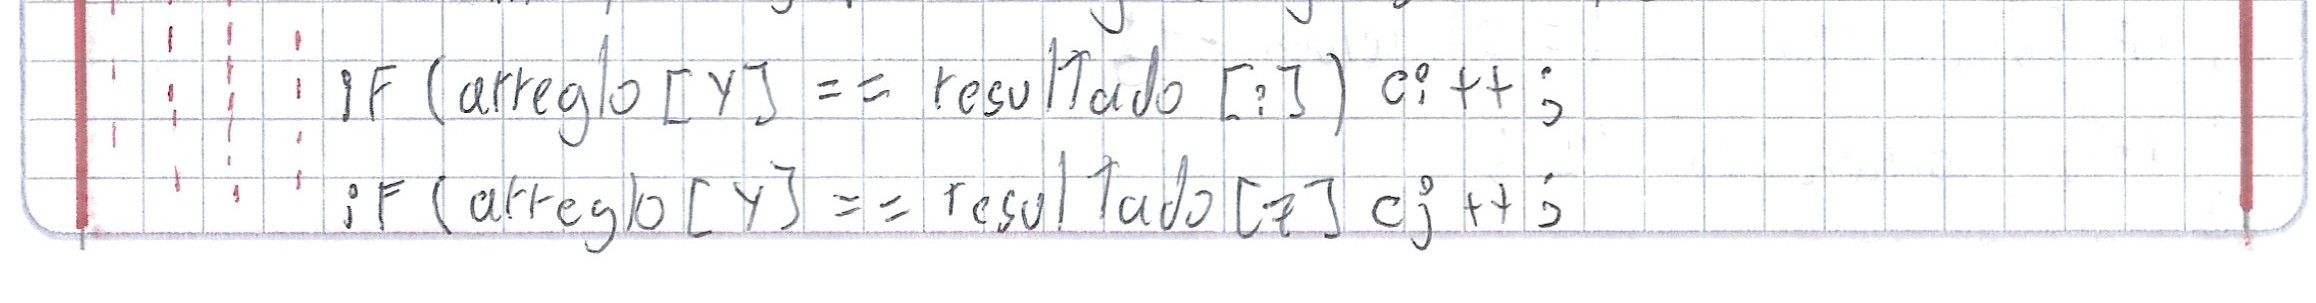 iF (arreglo [Y] == resultado [i]) ci ++ ;
iF (arreglo [Y] == resultado [z] cj ++ ;